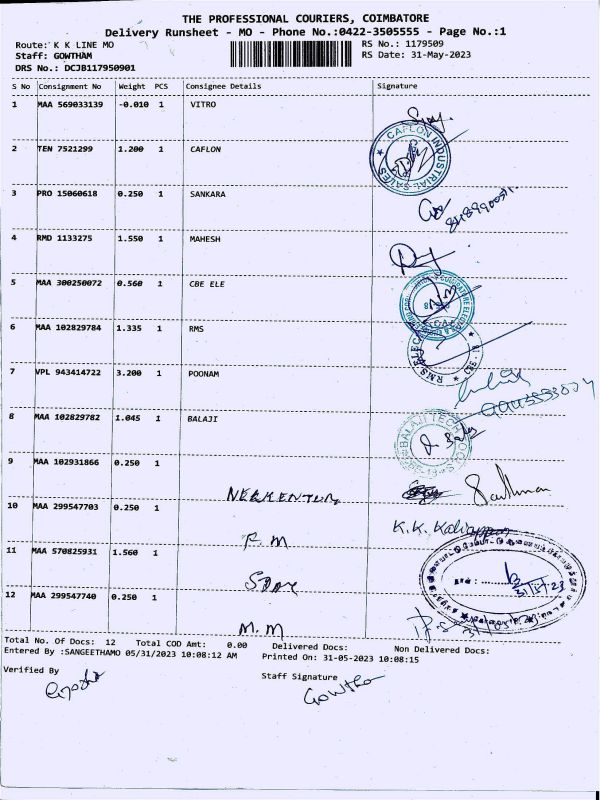 THE PROFESSIONAL COURIERS, COIMBATORE
Delivery Runsheet - MO - Phone No.:0422-3505555 - Page No.:1
Route: K K LINE MO
RS No.: 1179509
Staff: GOWTHAM
RS Date: 31-May-2023
DRS No.: DCJB117950901
S No Consignment No Weight PCS Consignee Details Signature
1 MAA 569033139 -0.010 1 VITRO
2 TEN 7521299 1.200 1 CAFLON
CAFLON INDUSTRIAL SALES
3 PRO 15060618 0.250 1 SANKARA
4 RMD 1133275 1.550 1 MAHESH
5 MAA 300250072 0.560 1 CBE ELE
6 MAA 102829784 1.335 1 RMS
7 VPL 943414722 3.200 1 POONAM
8 MAA 102829782 1.045 1 BALAJI
BALAJI TECH
9 MAA 102931866 0.250 1
10 MAA 299547703 0.250 1
K.K. Kaliappan
F.M
11 MAA 570825931 1.560 1
31/5/23
12 MAA 299547740 0.250 1
M.M
Total No. Of Docs: 12 Total COD Amt: 0.00 Delivered Docs: Non Delivered Docs:
Entered By :SANGEETHAMO 05/31/2023 10:08:12 AM Printed On: 31-05-2023 10:08:15
Verified By
Staff Signature
Gowtha